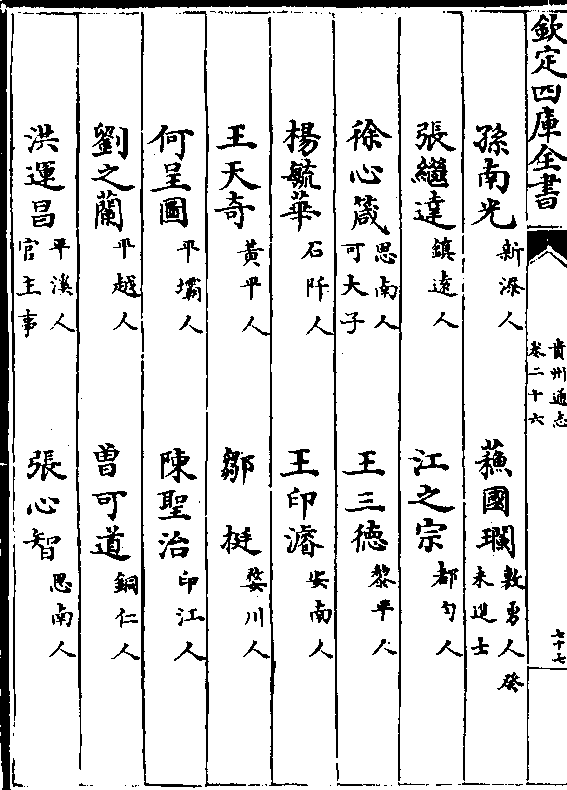 欽定四庫全書
貴州通志
卷二十六
七十七
孫南光 新添人 蘓國瓓 敷勇人癸未進士
張繼達 鎮遠人 江之宗 都勻人
徐心箴 思南人可大子 王三德 黎平人
楊毓華 石阡人 王印濬 安南人
王天奇 黃平人 鄒挺 婺川人
何呈圖 平壩人 陳聖治 印江人
劉之蘭 平越人 曾可道 銅仁人
洪運昌 平溪人官主事 張心智 思南人